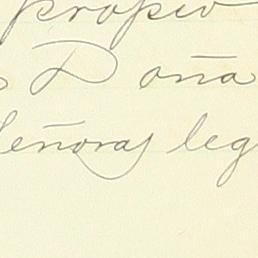 propio
Doña
Señoras leg